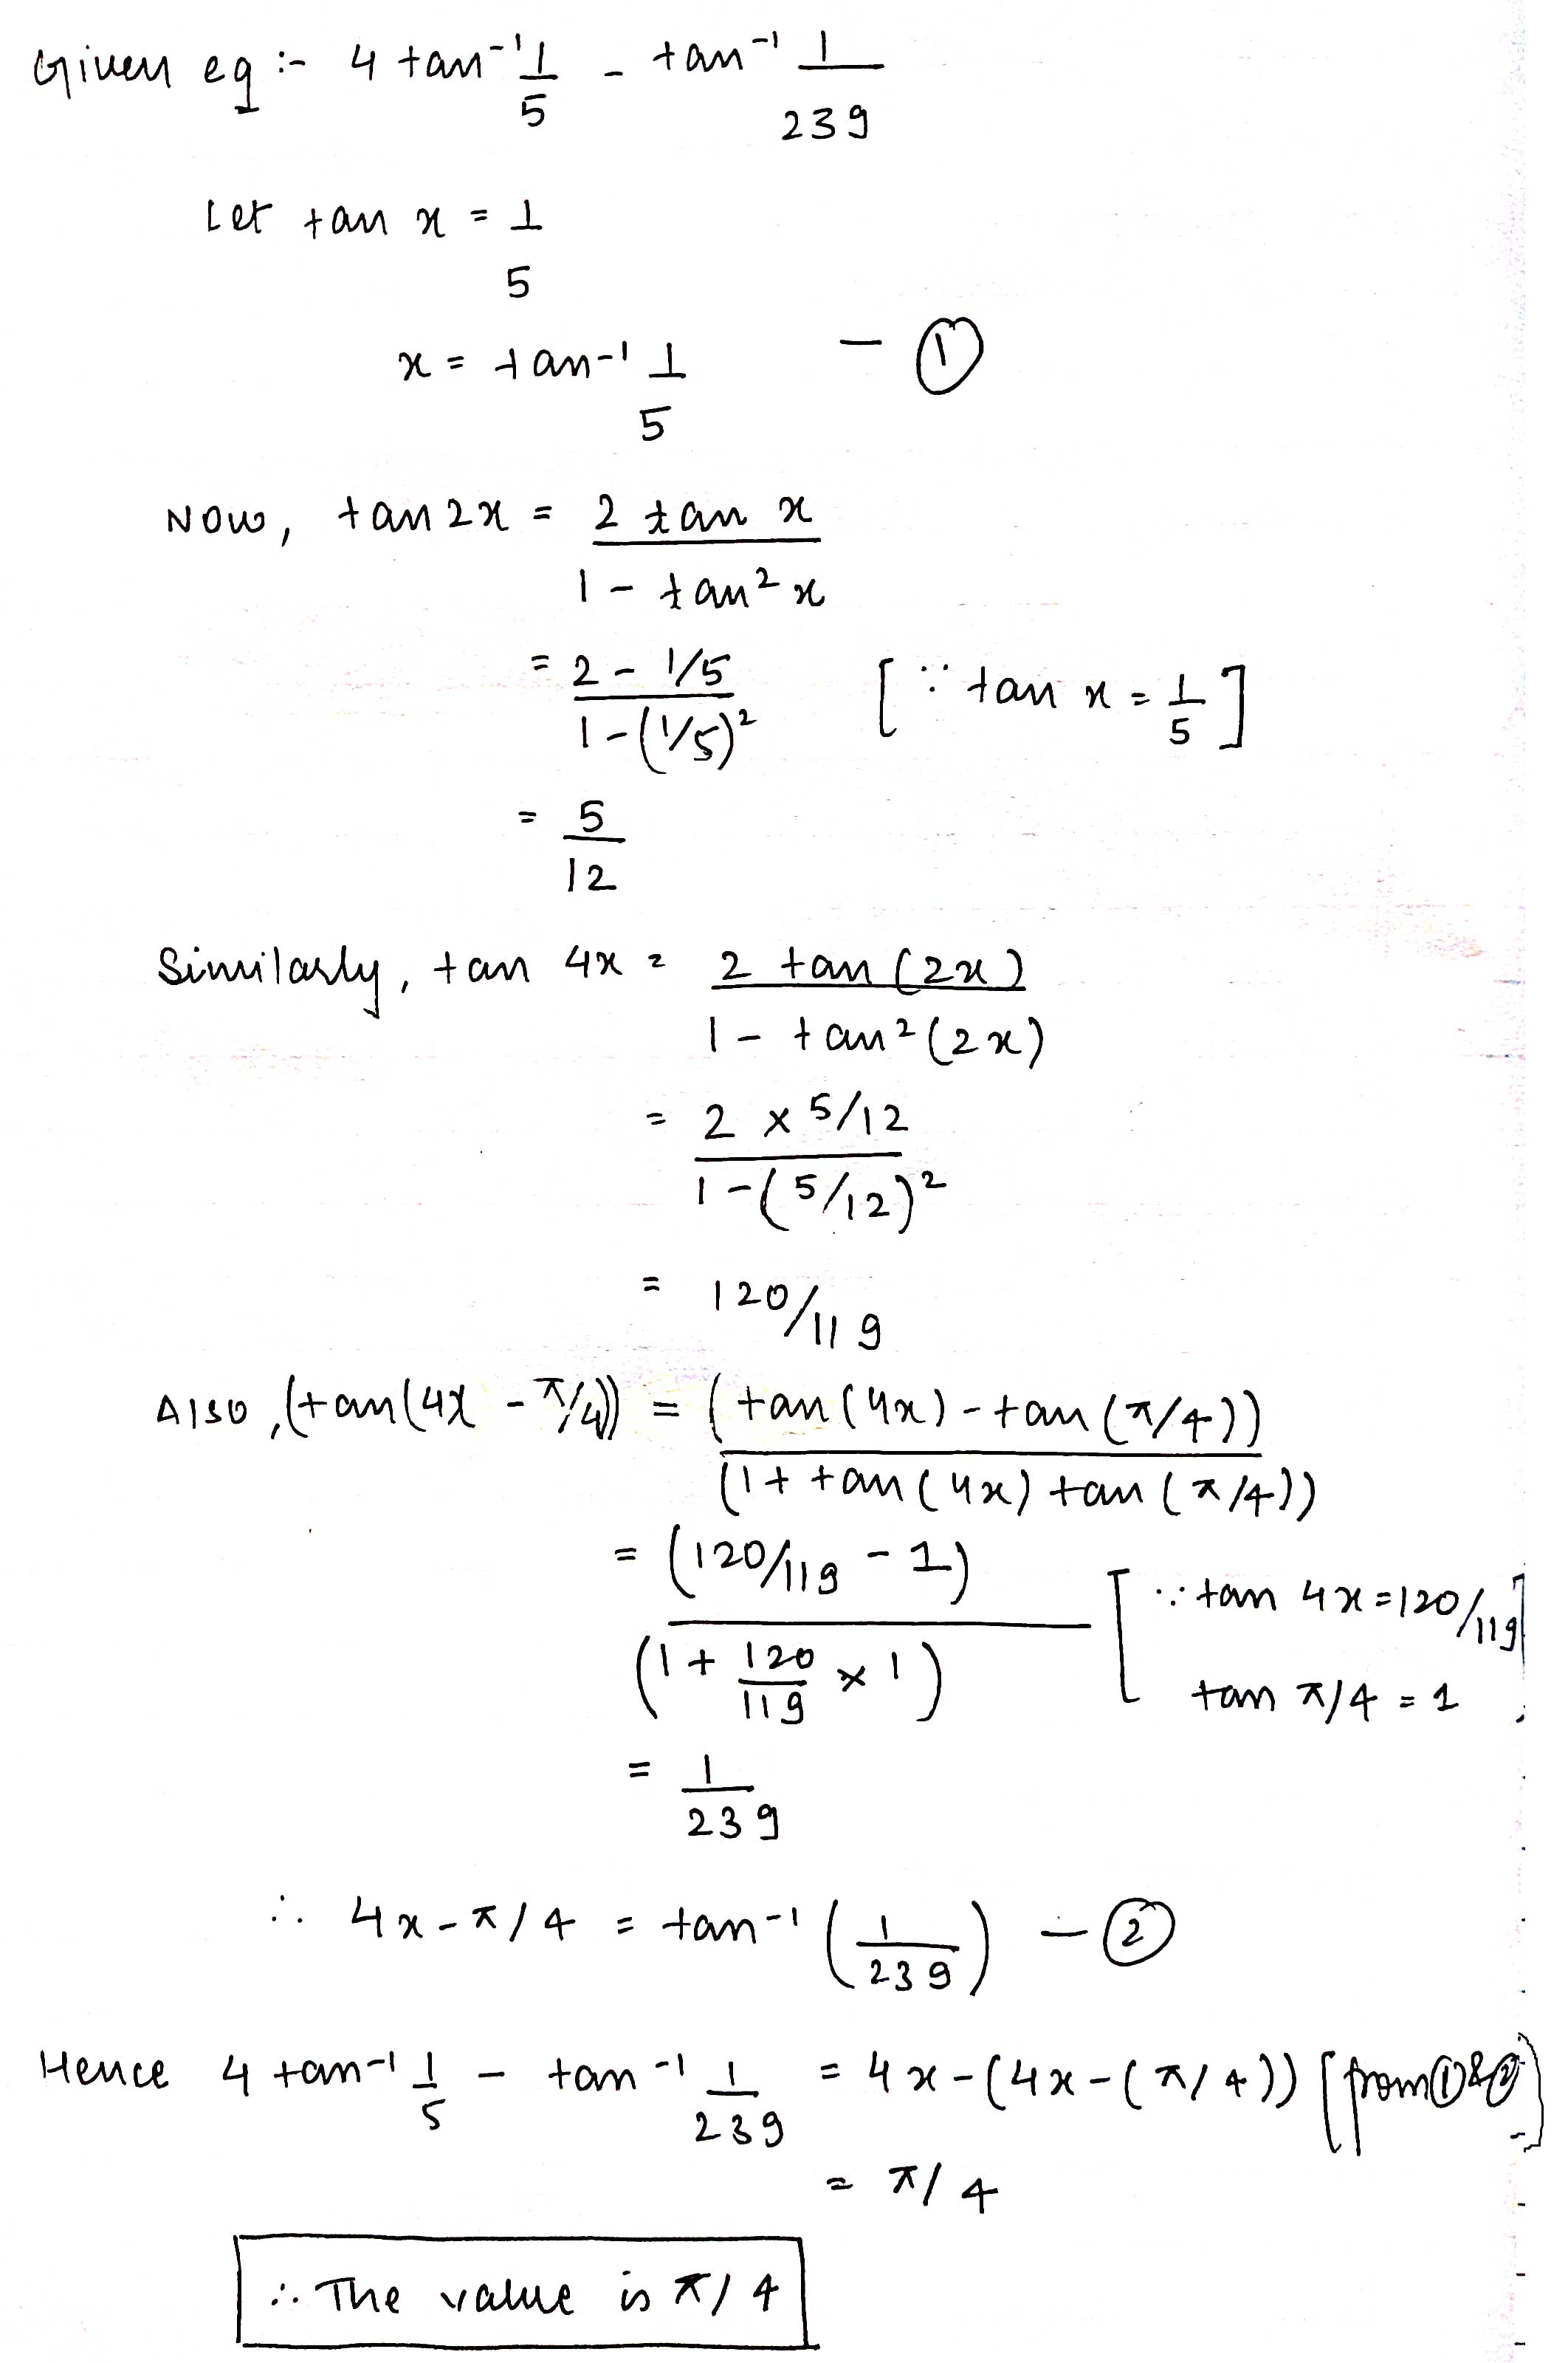 Given eq :- 4 tan⁻¹ 1/5 - tan⁻¹ 1/239
Let tan x = 1/5
x = tan⁻¹ 1/5 - ①
Now, tan 2x = 2 tan x / 1 - tan² x
= 2 - 1/5 / 1 - (1/5)² [∵ tan x = 1/5]
= 5/12
Similarly, tan 4x = 2 tan (2x) / 1 - tan² (2x)
= 2 × 5/12 / 1 - (5/12)²
= 120/119
Also, (tan(4x - π/4)) = (tan(4x) - tan(π/4)) / (1 + tan(4x) tan(π/4))
= (120/119 - 1) / (1 + 120/119 × 1) [∵ tan 4x = 120/119]
tan π/4 = 1
= 1/239
∴ 4x - π/4 = tan⁻¹ (1/239) - ②
Hence 4 tan⁻¹ 1/5 - tan⁻¹ 1/239 = 4x - (4x - (π/4)) [from ① & ②]
= π/4
∴ The value is π/4